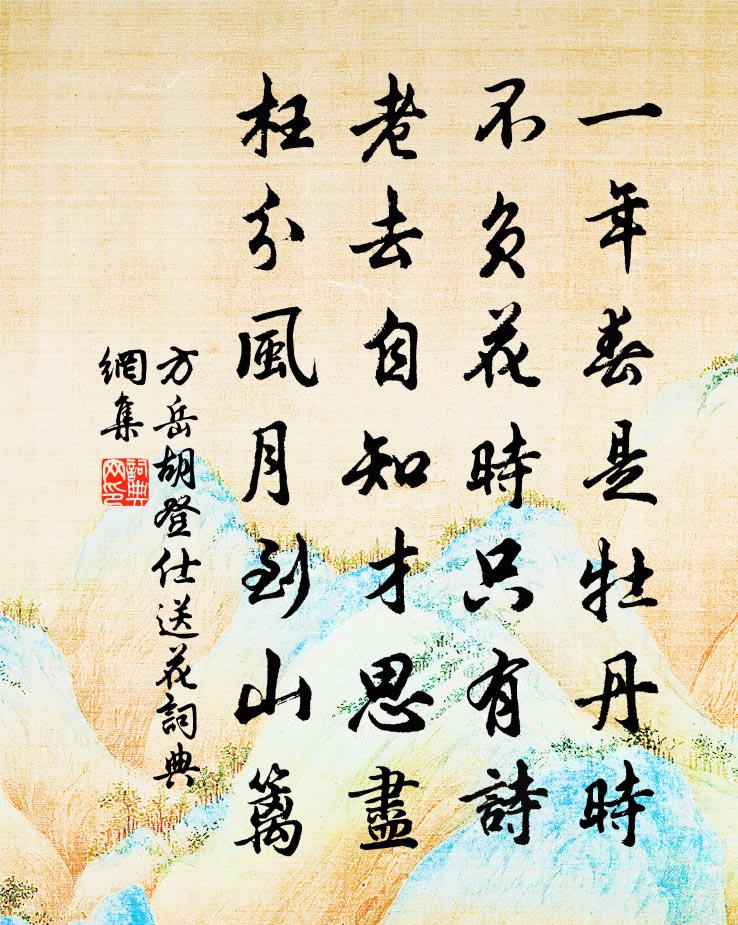 一年春是牡丹時
不負花時只有詩
老去自知才思盡
枉分風月到山籬
方岳胡登仕送花詞典
網集
詞典
网印